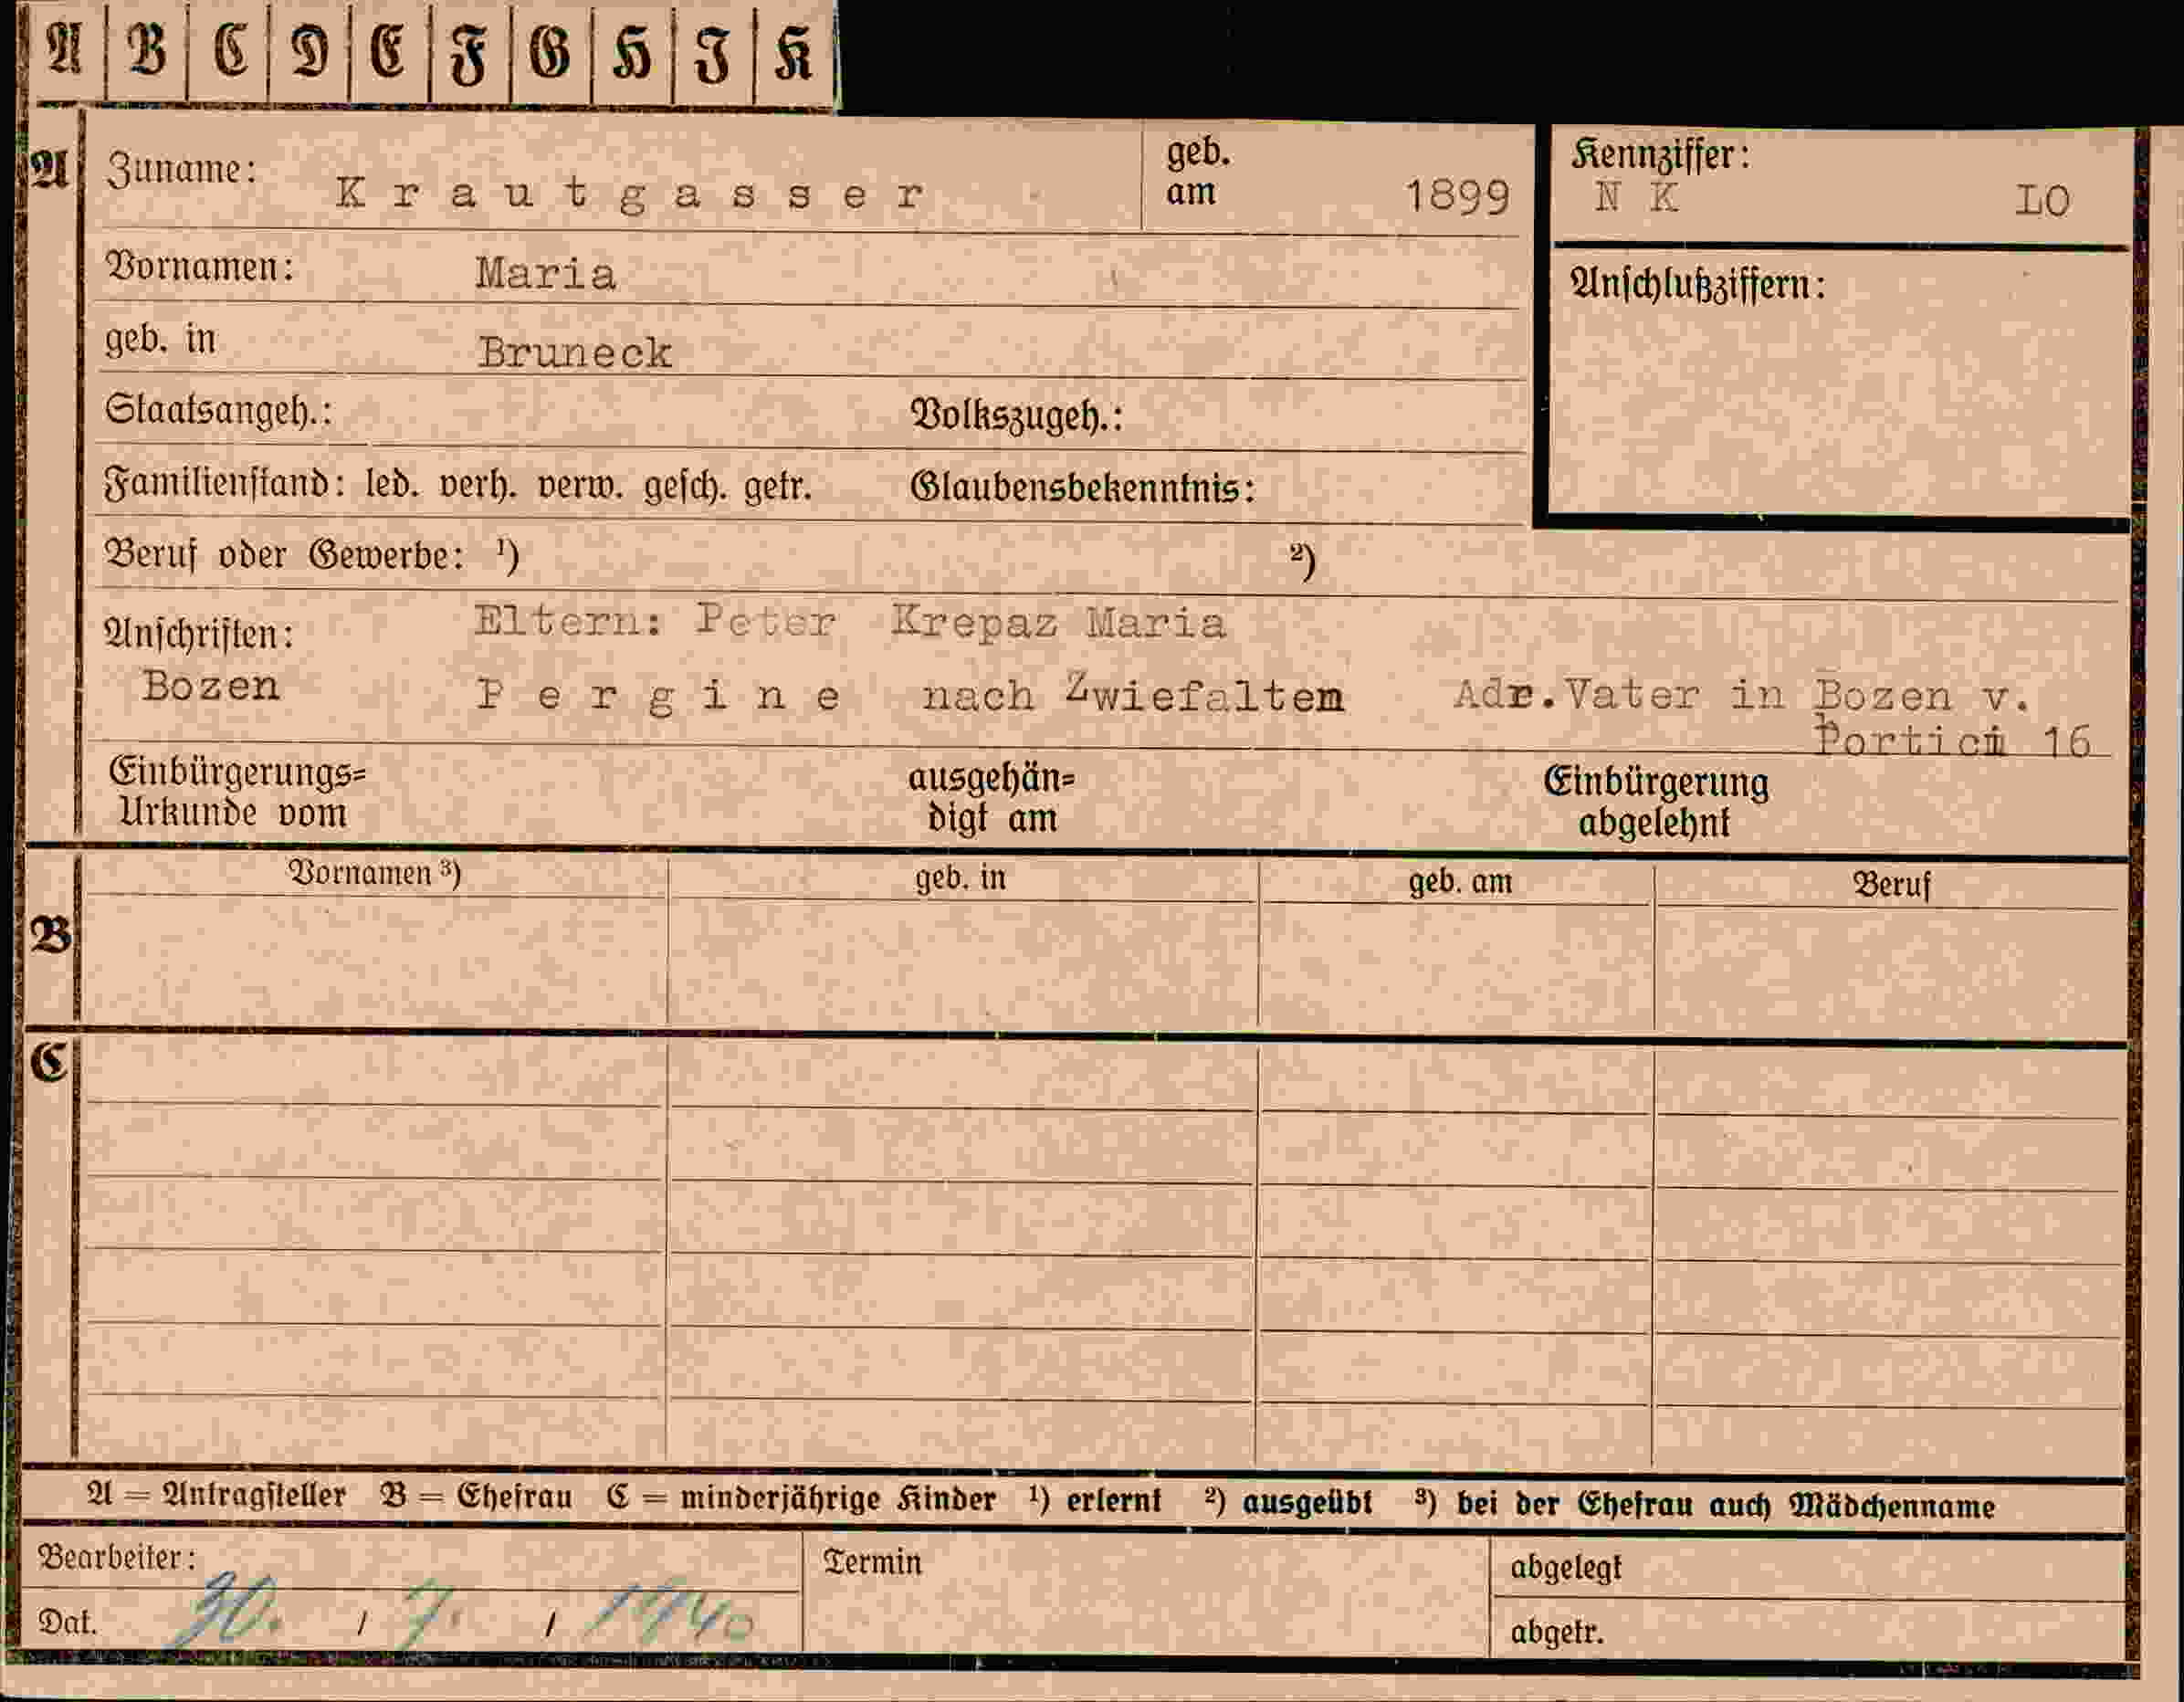 A B C D E F G H I K
A Zuname: Krautgasser geb. am 1899 Kennziffer: N K LO
Vornamen: Maria Anschlußziffern:
geb. in Bruneck
Staatsangeh.: Volkszugeh.:
Familienstand: led. verh. verw. gesch. getr. Glaubensbekenntnis:
Beruf oder Gewerbe: ¹) ²)
Anschriften: Eltern: Peter Krepaz Maria
Bozen Pergine nach Zwiefalten Adr.Vater in Bozen v.
Portici 16
Einbürgerungs= ausgehän= Einbürgerung
Urkunde vom digt am abgelehnt
Vornamen ³) geb. in geb. am Beruf
B
C
A = Antragsteller B = Ehefrau C = minderjährige Kinder ¹) erlernt ²) ausgeübt ³) bei der Ehefrau auch Mädchenname
Bearbeiter: Termin abgelegt
Dat. 30. / 7. / 1940 abgetr.